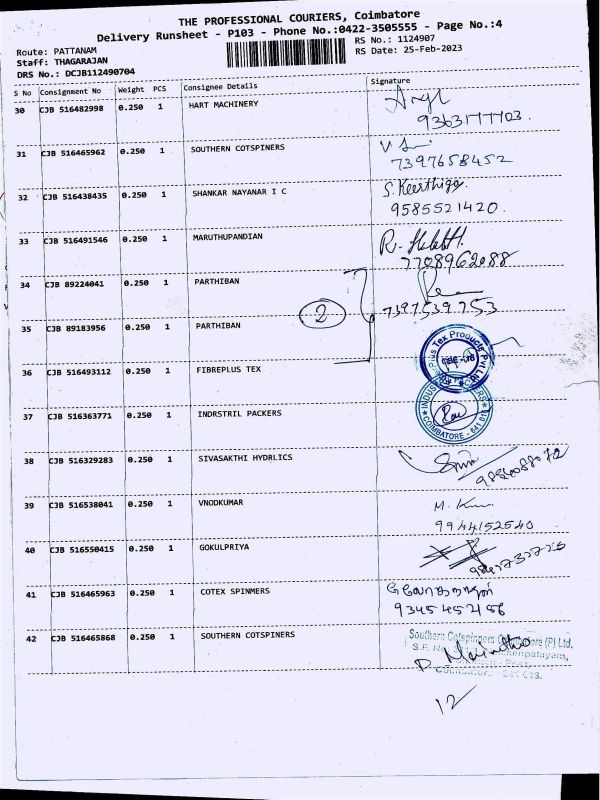 THE PROFESSIONAL COURIERS, Coimbatore
Delivery Runsheet - P103 - Phone No.:0422-3505555 - Page No.:4
Route: PATTANAM
RS No.: 1124907
Staff: THAGARAJAN
RS Date: 25-Feb-2023
DRS No.: DCJB112490704
S No Consignment No Weight PCS Consignee Details Signature
30 CJB 516482998 0.250 1 HART MACHINERY
9363177703.
31 CJB 516465962 0.250 1 SOUTHERN COTSPINERS
7397658452
32 CJB 516438435 0.250 1 SHANKAR NAYANAR I C S. Keerthiga.
9585521420.
33 CJB 516491546 0.250 1 MARUTHUPANDIAN
7708962088
34 CJB 89224041 0.250 1 PARTHIBAN
2 7397539753
35 CJB 89183956 0.250 1 PARTHIBAN
36 CJB 516493112 0.250 1 FIBREPLUS TEX
Plus Tex Products Pvt Ltd
37 CJB 516363771 0.250 1 INDRSTRIL PACKERS
COIMBATORE - 641 015
38 CJB 516329283 0.250 1 SIVASAKTHI HYDRLICS
39 CJB 516538041 0.250 1 VNODKUMAR
9944152540
40 CJB 516550415 0.250 1 GOKULPRIYA
41 CJB 516465963 0.250 1 COTEX SPINMERS
9345452456
42 CJB 516465868 0.250 1 SOUTHERN COTSPINERS
Southern Cotspinners Coimbatore (P) Ltd.
12